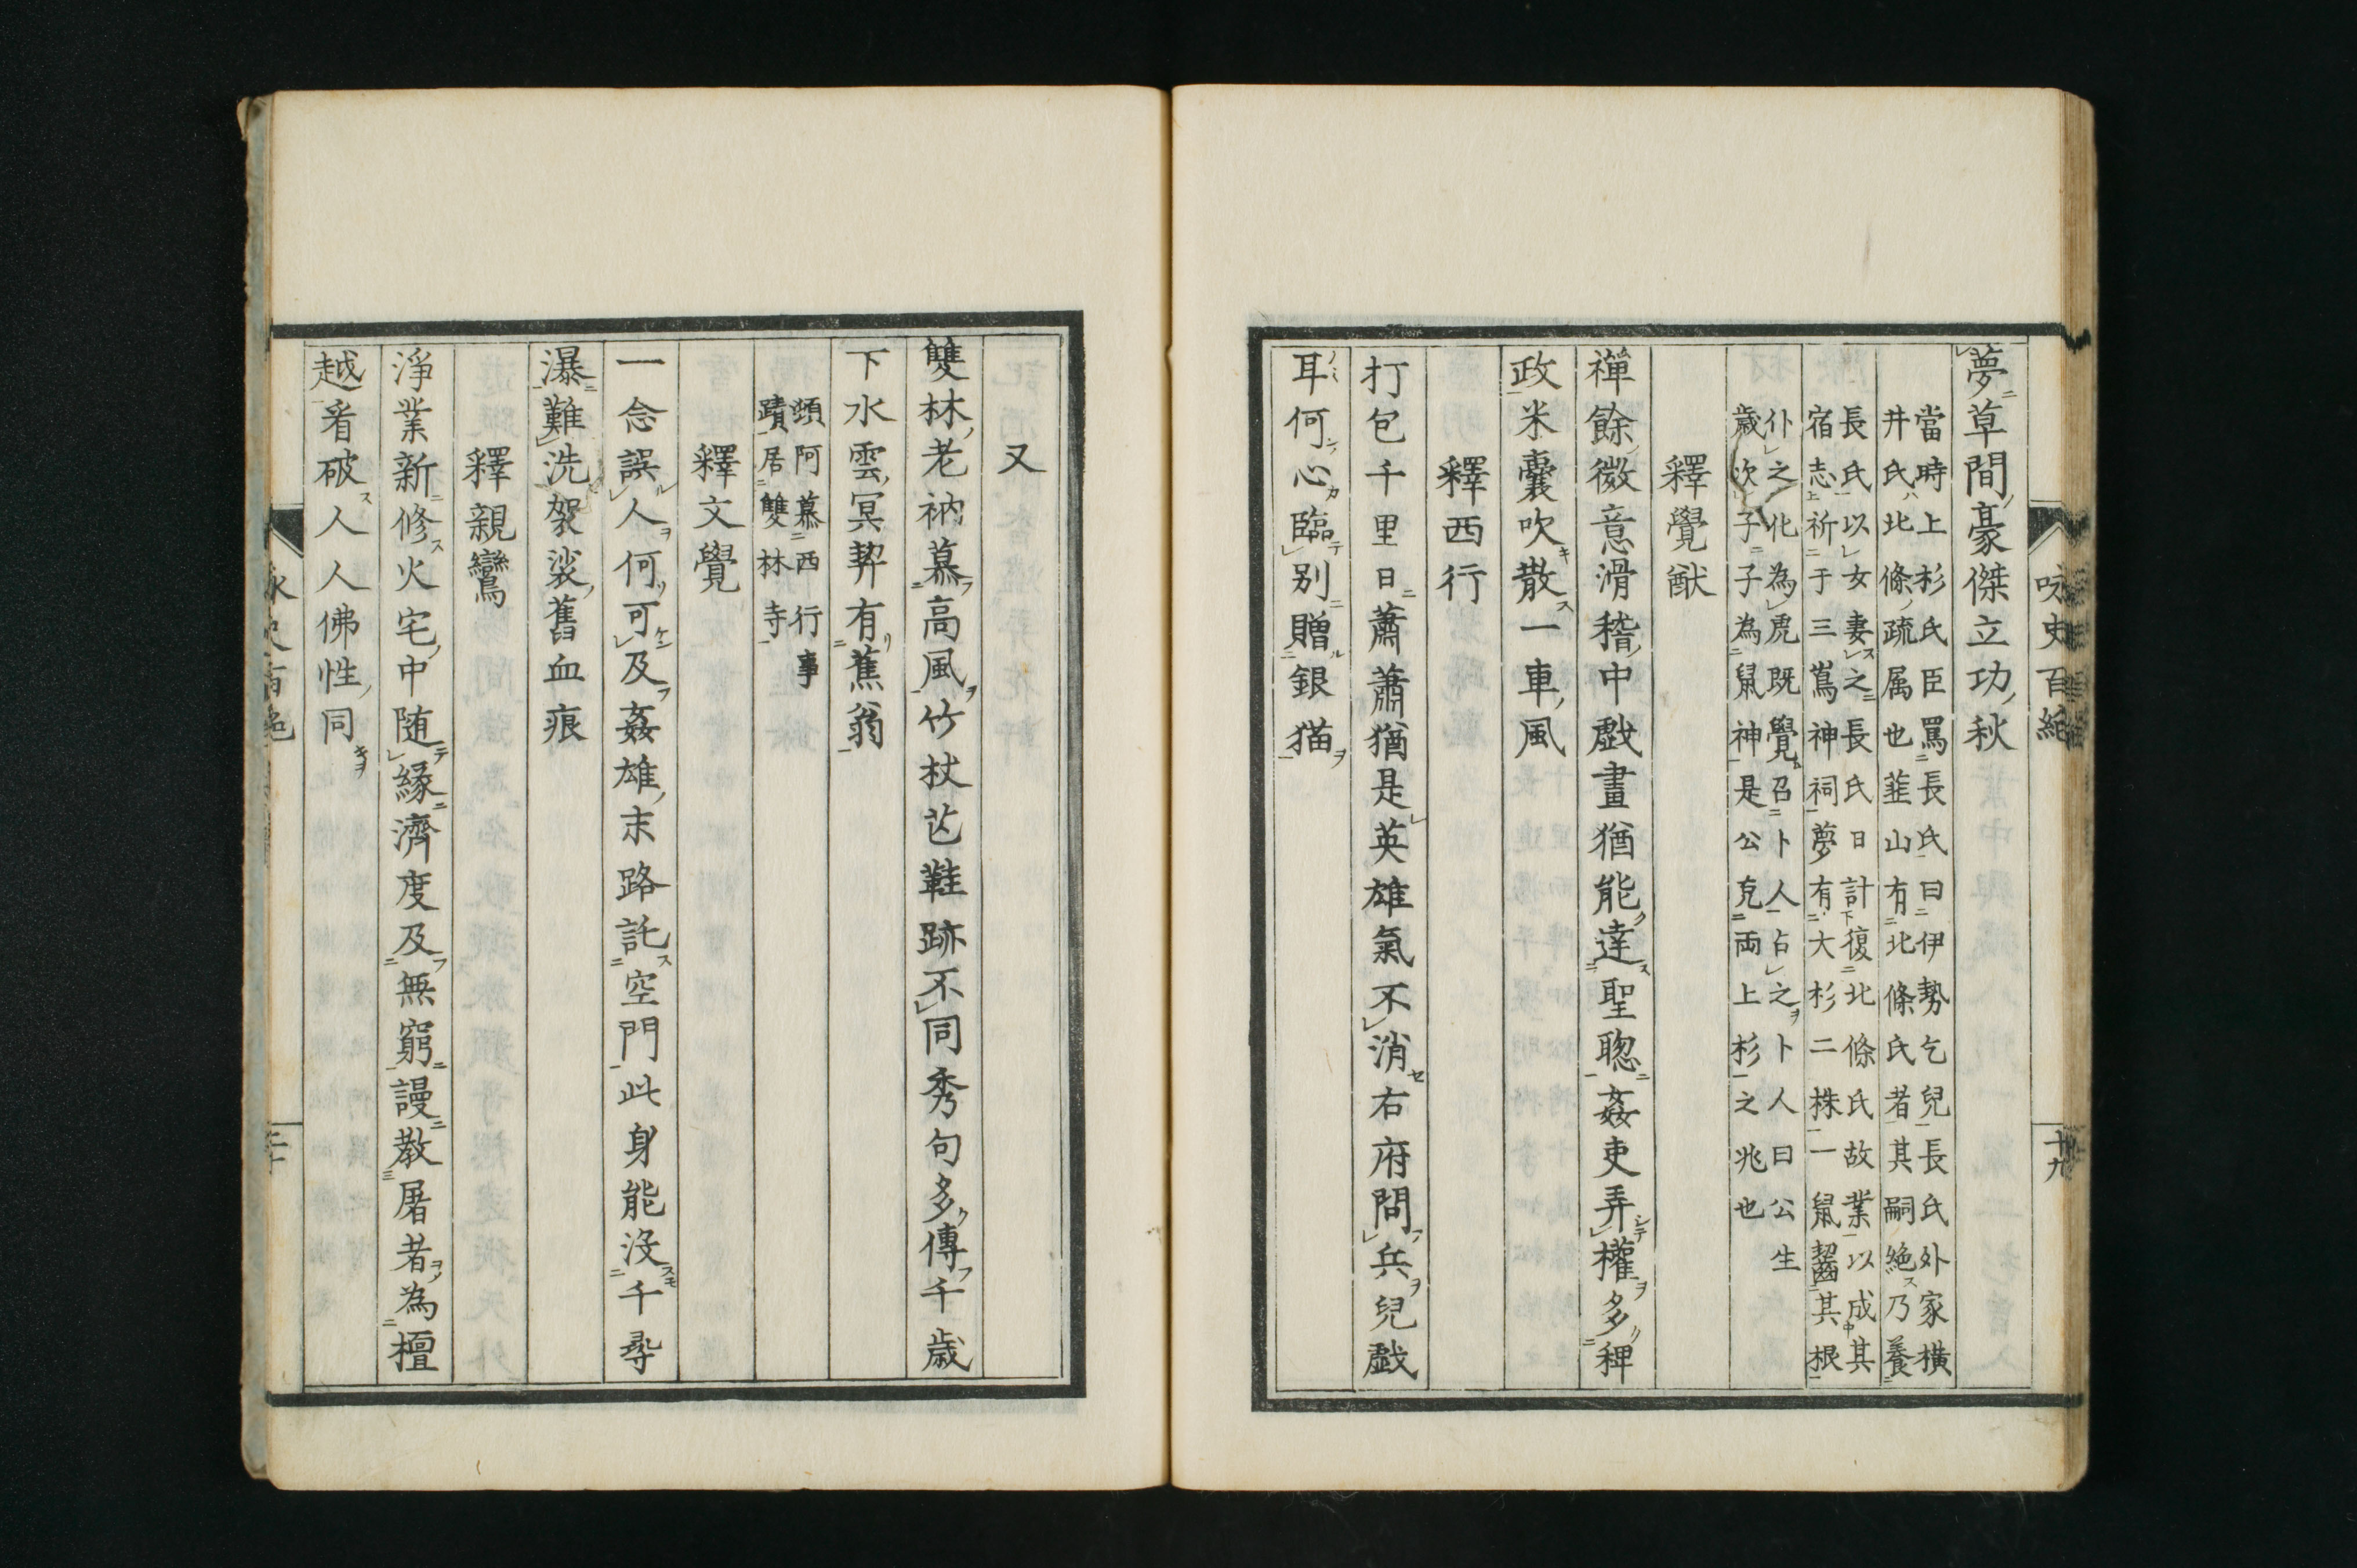 咏史百絶
十九
夢草間豪傑立功秋
當時上杉氏臣罵長氏曰伊勢乞兒長氏外家横
井氏北條疏属也韮山有北條氏者其嗣絶乃養
長氏以女妻之長氏日計復北條氏故業以成其
宿志祈于三嶌神祠夢有大杉二株一鼠齧其根
仆之化為虎既覺召卜人占之卜人曰公生
歳次子子為鼠神是公克両上杉之兆也
釋覺猷
禪餘微意滑稽中戲畫猶能達聖聰姦吏弄權多稗
政米囊吹散一車風
釋西行
打包千里日蕭蕭猶是英雄氣不消右府問兵兒戲
耳何心臨别贈銀猫
又
雙林老衲慕高風竹杖芒鞋跡不同秀句多傳千歳
下水雲冥契有蕉翁
頌阿慕西行事
蹟居雙林寺
釋文覺
一念誤人何可及姦雄末路託空門此身能没千尋
瀑難洗袈裟舊血痕
釋親鸞
淨業新修火宅中随縁濟度及無窮謾教屠者為檀
越看破人人佛性同
咏史百絶
二十